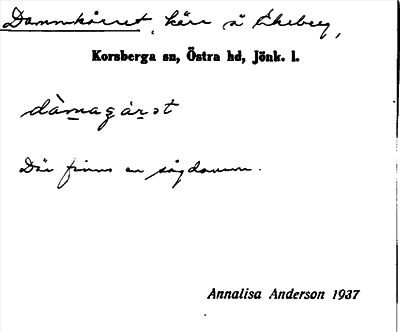 Dammkärret, kärr å Ekeberg,
Korsberga sn, Östra hd, Jönk. l.
dàmaçä̀rət
Där finns en sågdamm.
Annalisa Anderson 1937